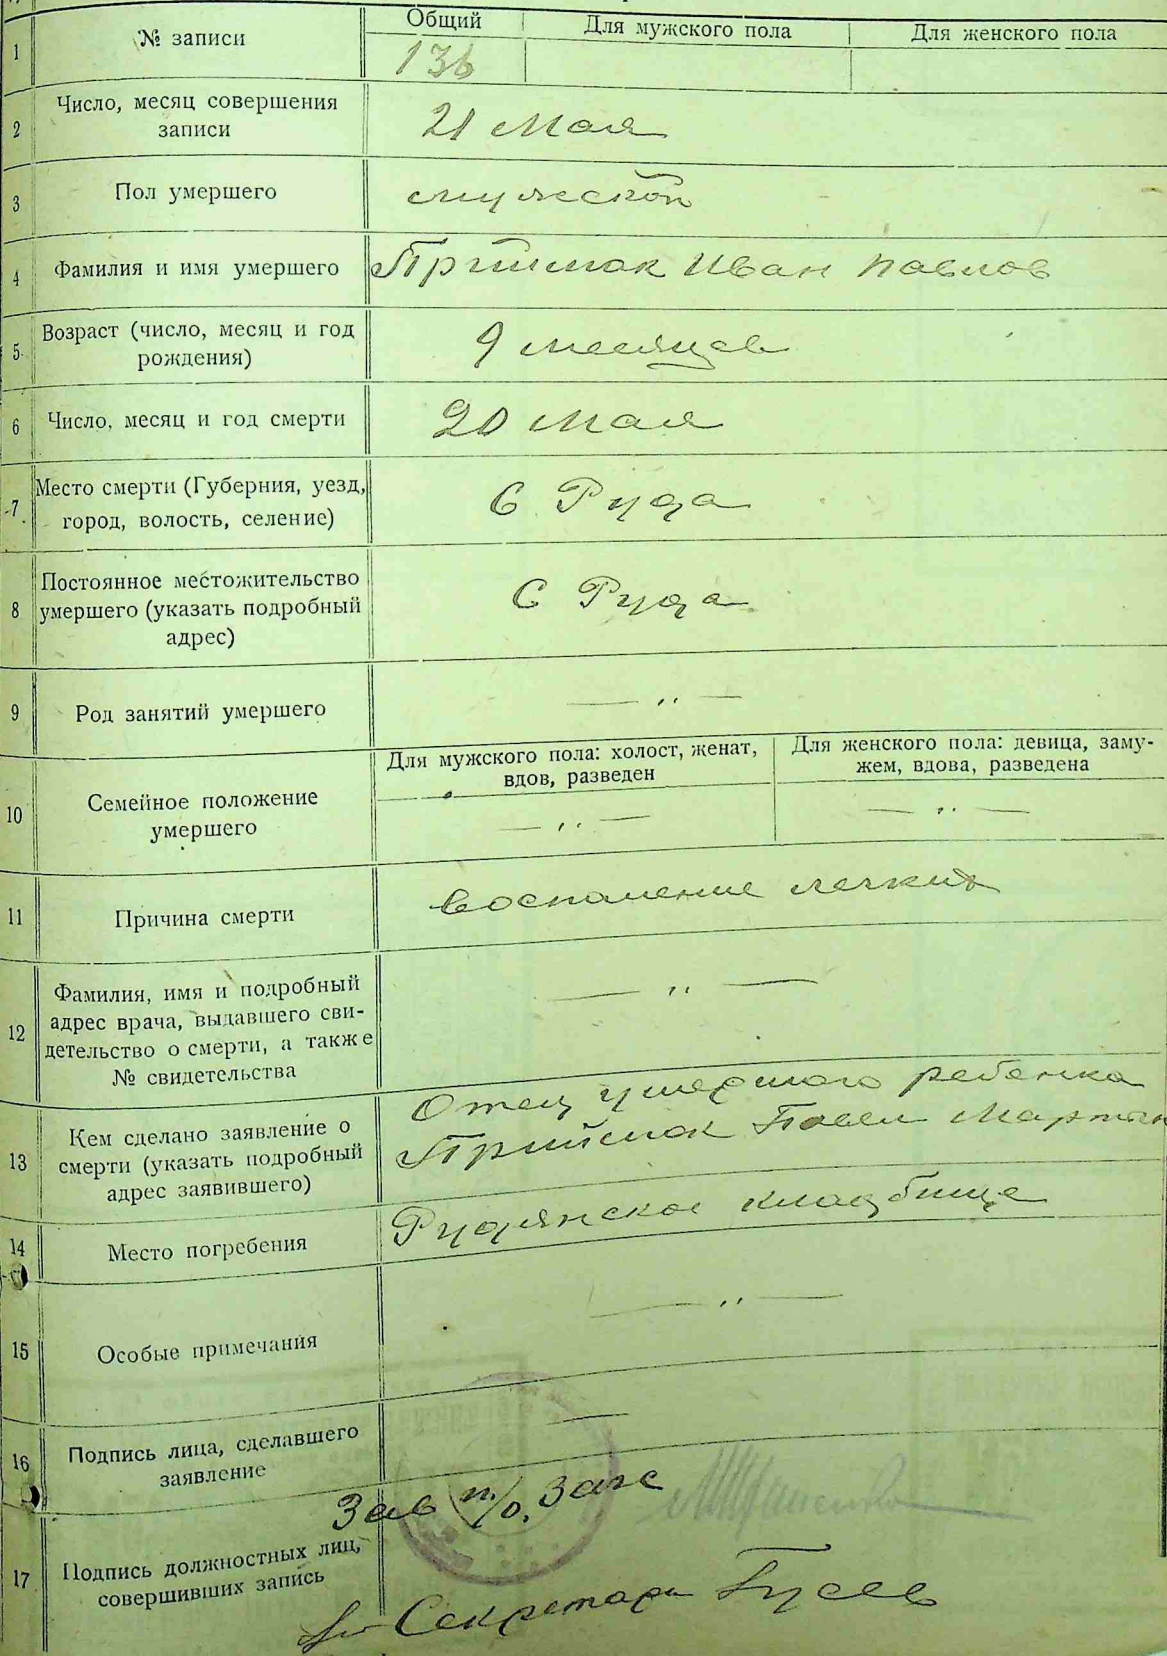 1 № записи Общий Для мужского пола Для женского пола
136
2 Число, месяц совершения
записи
21 Мая
3 Пол умершего мужской
4 Фамилия и имя умершего Приймак Иван Павлов
5 Возраст (число, месяц и год
рождения)
9 месяцев
6 Число, месяц и год смерти 20 Мая
7 Место смерти (Губерния, уезд,
город, волость, селение)
С Руда
8 Постоянное местожительство
умершего (указать подробный
адрес)
С Руда
9 Род занятий умершего — „ —
10 Семейное положение
умершего
Для мужского пола: холост, женат,
вдов, разведен
— „ —
Для женского пола: девица, заму-
жем, вдова, разведена
— „ —
11 Причина смерти воспаление легких
12 Фамилия, имя и подробный
адрес врача, выдавшего сви-
детельство о смерти, а также
№ свидетельства
— „ —
13 Кем сделано заявление о
смерти (указать подробный
адрес заявившего)
Отец умершого ребенка
Приймак Павел Мартын
14 Место погребения Рудянское кладбище
15 Особые примечания — „ —
16 Подпись лица, сделавшего
заявление
—
17 Подпись должностных лиц,
совершивших запись
Зав п/о. Загс
Секретарь Гусев